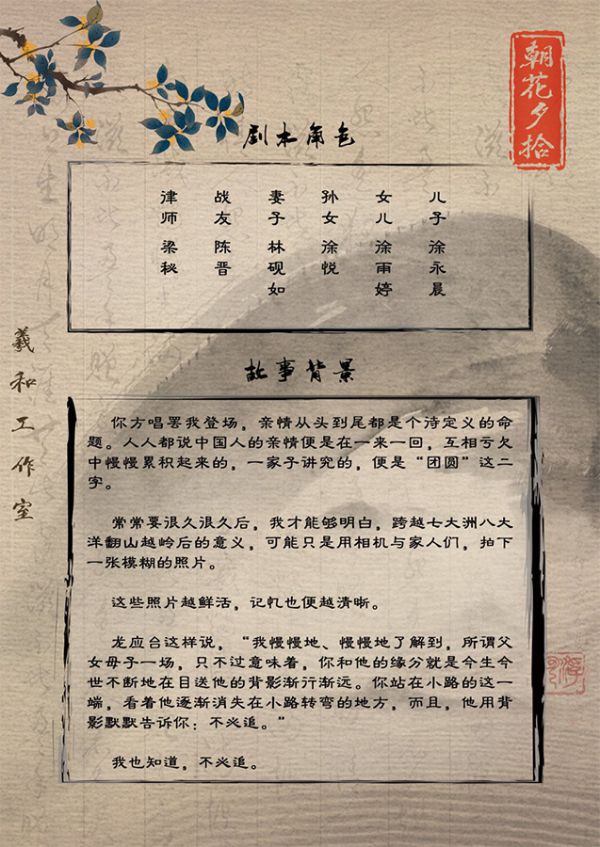 朝花夕拾
剧本角色
儿子 徐永晨
女儿 徐雨婷
孙女 徐悦
妻子 林砚如
战友 陈晋
律师 梁秘
羲和工作室
故事背景
你方唱罢我登场，亲情从头到尾都是个待定义的命
题。人人都说中国人的亲情便是在一来一回，互相亏欠
中慢慢累积起来的，一家子讲究的，便是“团圆”这二
字。
常常要很久很久后，我才能够明白，跨越七大洲八大
洋翻山越岭后的意义，可能只是用相机与家人们，拍下
一张模糊的照片。
这些照片越鲜活，记忆也便越清晰。
龙应台这样说，“我慢慢地、慢慢地了解到，所谓父
女母子一场，只不过意味着，你和他的缘分就是今生今
世不断地在目送他的背影渐行渐远。你站在小路的这一
端，看着他逐渐消失在小路转弯的地方，而且，他用背
影默默告诉你：不必追。”
我也知道，不必追。